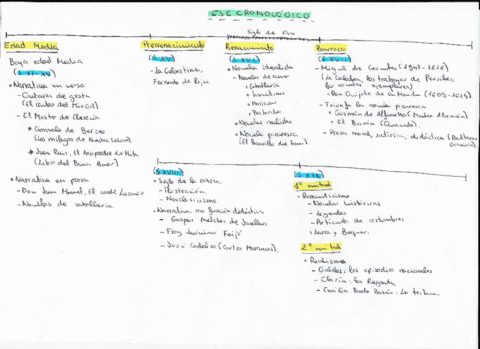 EJE CRONOLÓGICO
Siglo de Oro
Edad Media
Baja edad Media
(s. XI-XV)
Narrativa en verso
- Cantares de gesta
(El cantar del Mio Cid)
- El Mester de Clerecía
Gonzalo de Berceo
(Los milagros de Nuestra Señora)
Juan Ruiz, el Arcipreste de Hita
(Libro del Buen Amor)
Narrativa en prosa
- Don Juan Manuel, El conde Lucanor
- Novelas de caballería
Prerrenacimiento
(s. XV)
- La Celestina,
Fernando de Rojas
Renacimiento
(s. XVI)
Novela idealista
- Novelas de
Caballería
Sentimental
Morisca
Pastoriles
Novelas realistas
Novela picaresca
(El Lazarillo de Tormes)
Barroco
(s. XVII)
- Miguel de Cervantes (1547-1616)
(La Galatea, los trabajos de Persiles,
las novelas ejemplares)
Don Quijote de la Mancha (1605-1615)
- Triunfa la novela picaresca
Guzmán de Alfarache (Mateo Alemán)
El Buscón (Quevedo)
- Prosa moral, satírica, didáctica (Baltasar
Gracián)
(s. XVIII)
Siglo de la razón
- Ilustración
- Neoclasicismo
Narrativa con función didáctica
- Gaspar Melchor de Jovellanos
- Fray Jerónimo Feijó
- José Cadalso (Cartas Marruecas)
(s. XIX)
1ª mitad
Romanticismo
- Novelas históricas
- Leyendas
- Artículos de costumbres
Larra y Bécquer.
2ª mitad
Realismo
- Galdós: los episodios nacionales
- Clarín: La Regenta
- Emilia Pardo Bazán: La tribuna